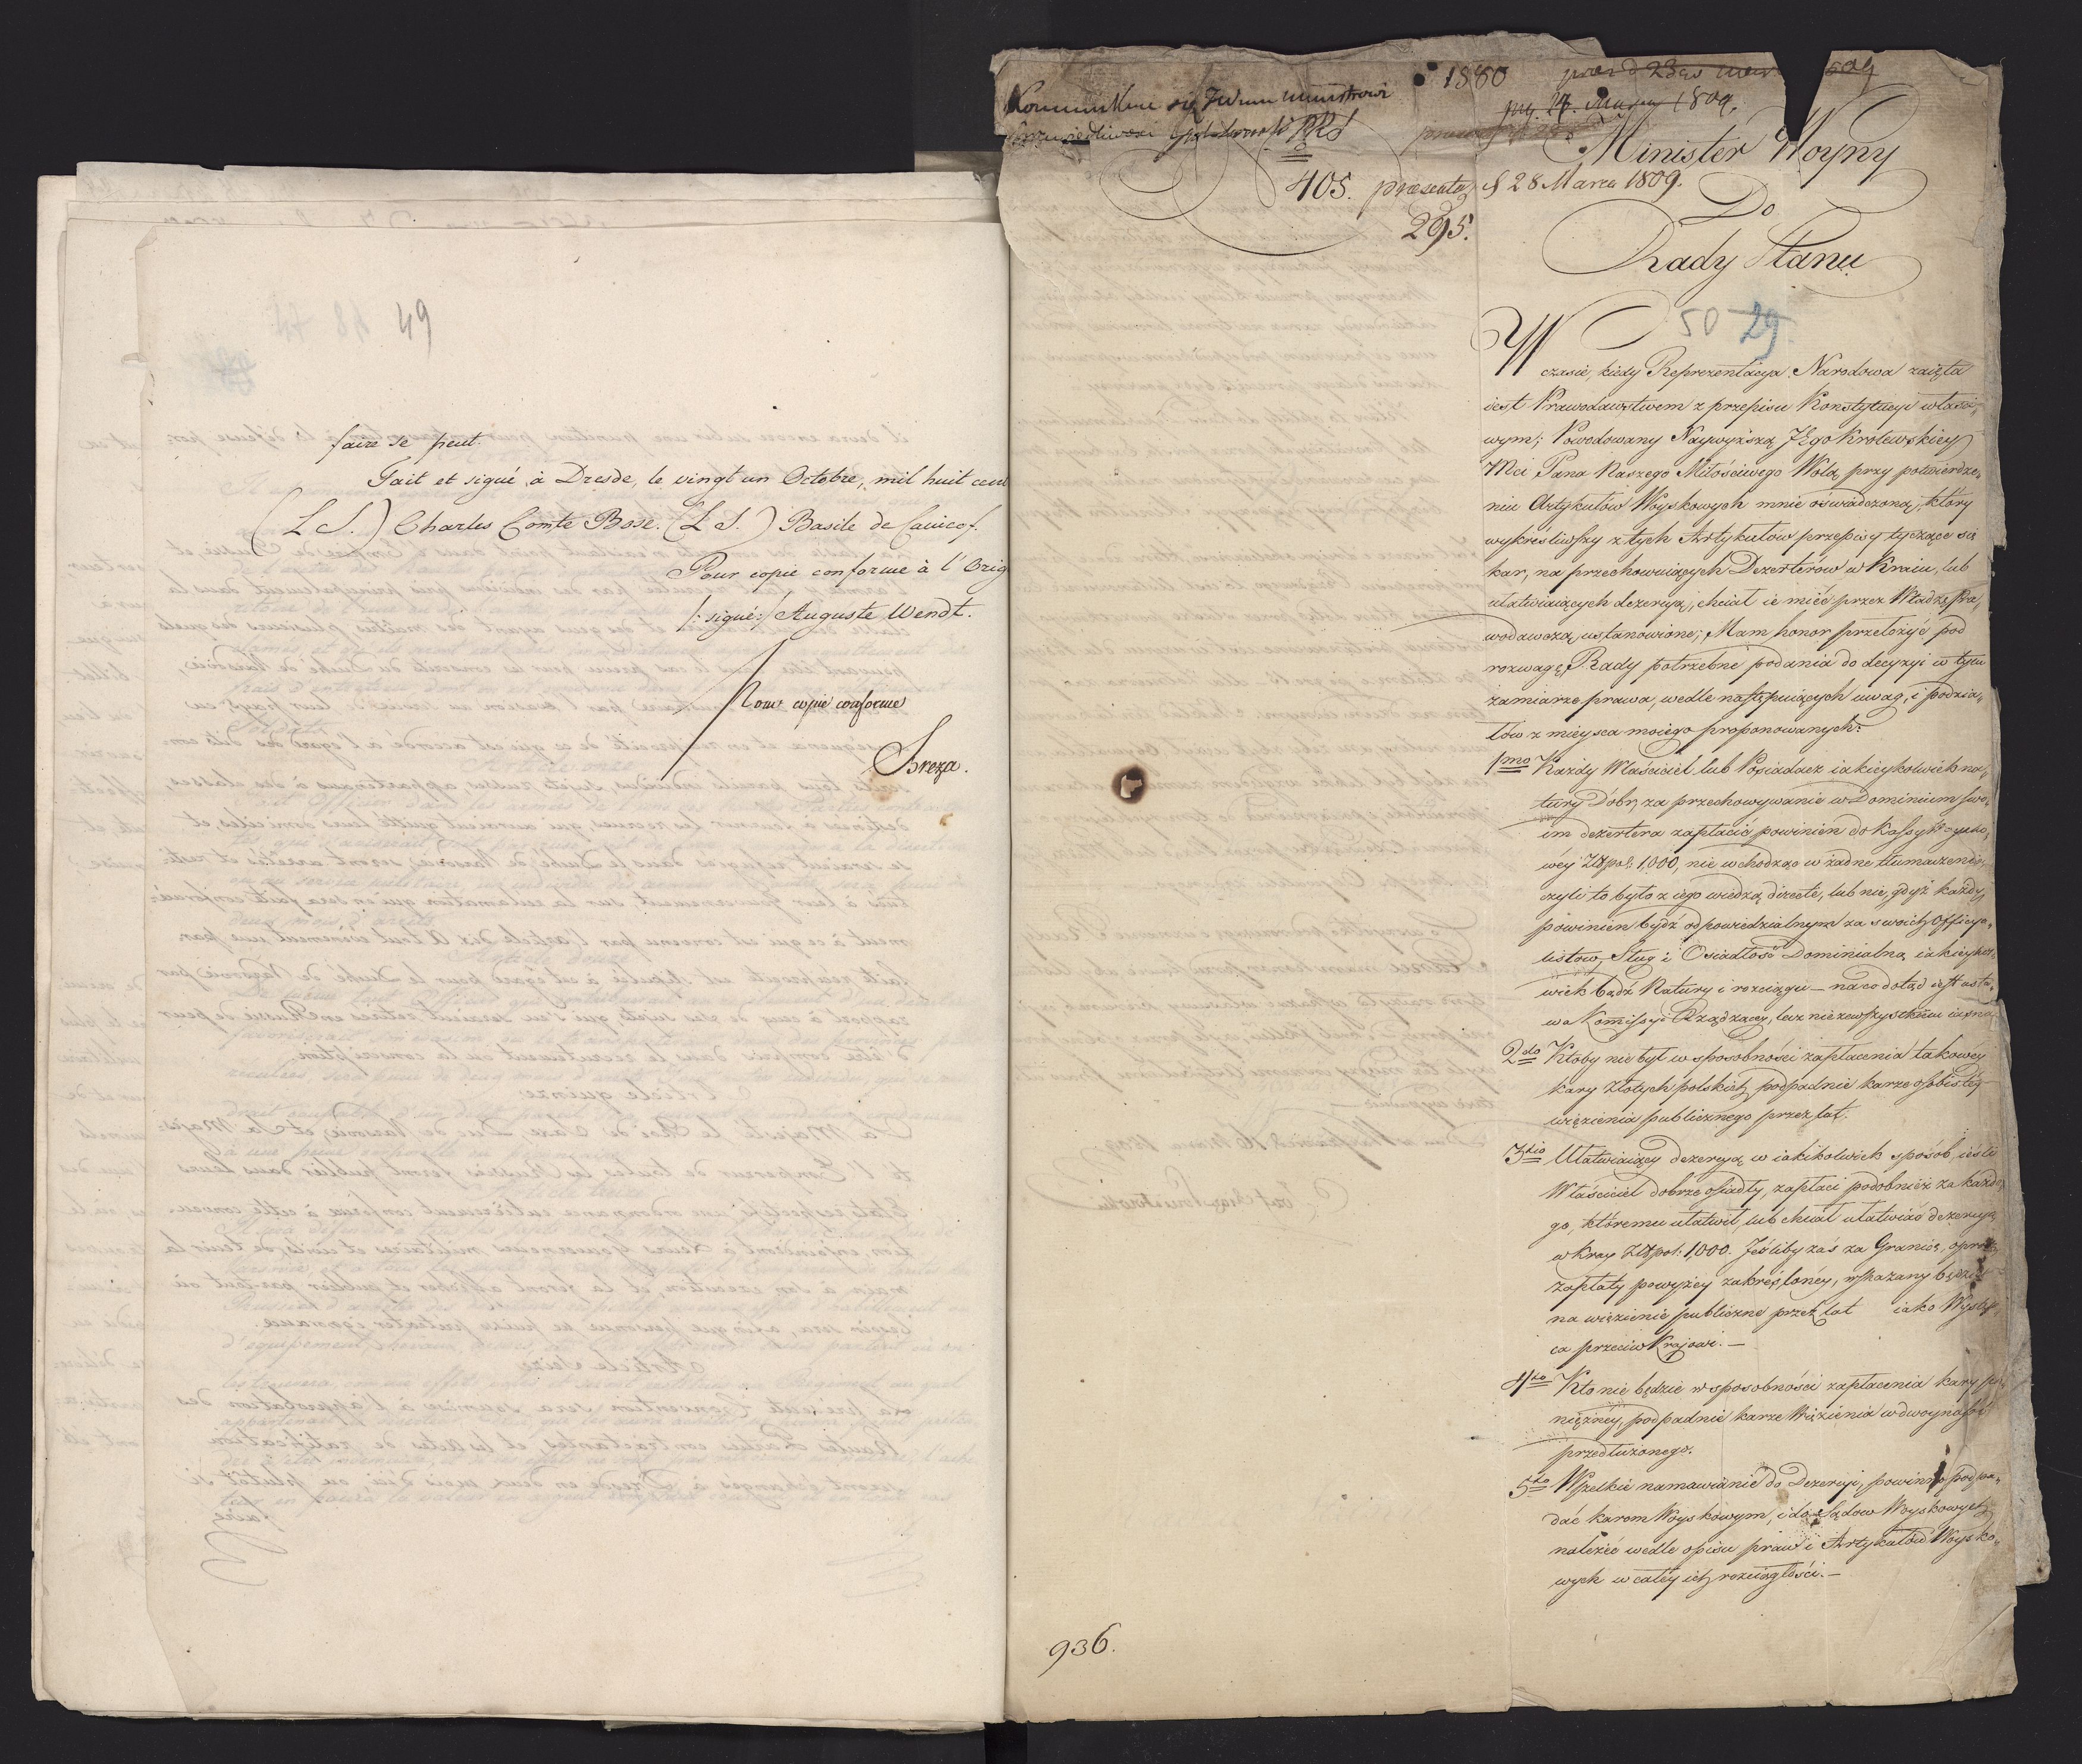 49
faire se peut.
Fait et signé à Dresde, le vingt un Octobre, mil huit cent
(L S.) Charles Comte Bose. (L S.) Basile de Canicof.
Pour copie conforme à l'Orig
/: signé :/ Auguste Wendt.
Pour copie conforme
Breza.
1880
27. Marca 1809.
Kommunikuie się JWmu Ministrowi
Sprawiedliwosci
Minister Woyny
405. praesentat d 28 Marca 1809.
295.
Do
Rady Stanu
50 29
W
czasie, kiedy Reprezentacya Narodowa zaięta
iest Prawodawstwem z przepisu Konstytucyi właści„
wym; Powodowany Naywyższą JEgo Krolewskiey
Mci Pana Naszego Miłościwego Wolą, przy potwierdze„
niu Artykułów Woyskowych mnie oświadczoną, który
wykreśliwszy z tych Artykułów przepisy tyczące się
kar, na przechowuiących Dezerterow w Kraiu, lub
ułatwiaiących dezercyą, chciał ie mieć przez Władzę Pra„
wodawczą ustanowione; Mam honor przełożyć pod
rozwagę Rady potrzebne podania do decyzyi w tym
zamiarze prawa, wedle następuiących uwag, i podzia„
łów z mieysca moiego proponowanych:
1mo Każdy Właściciel lub Posiadacz iakieykolwiek na„
tury Dóbr, za przechowywanie w Dominium swo„
im dezertera zapłacić powinien do Kassy Woysko„
wéy Złł pol: 1,000, nie wchodząc w żadne tłumaczenie,
czyli to było z iego wiedzą directe, lub nie, gdyż każdy
powinien bydź odpowiedzialnym za swoich Officya„
listow, Sług i Osiadłość Dominialną iakieykol„
wiek bądź Natury i rozciągu — na co dotąd iest usta„
wa Komissyi Rządzącey, lecz nie zewszystkiem iasna
2do Ktoby nie był w sposobności zapłacenia takowéy
kary Złotych polskich, podpadnie karze osobistéy
więzienia publicznego przez lat.
3tio Ułatwiaiący dezercyą w iakikolwiek sposób, ieśli
Właściciel dobrze osiadły, zapłaci podobnież za każde„
go, któremu ułatwił, lub chciał ułatwiać dezercyą
w Kray Złł pol: 1,000. Jeśliby zaś za Granicę, oprócz
zapłaty powyżey zakreślonéy, wskazany będzie
na więzienie publiczne przez lat iako Występ„
ca przeciw Krajowi. —
4to Kto nie będzie w sposobności zapłacenia kary pie„
niężnéy, podpadnie karze Więzienia w dwoynasób
przedłużonego.
5to Wszelkie namawianie do Dezercyi, powinno podpa„
dać karom Woyskowym, i do Sądow Woyskowych
należéć wedle opisu praw i Artykułów Woysko„
wych w całéy ich rozciągłości. —
936.